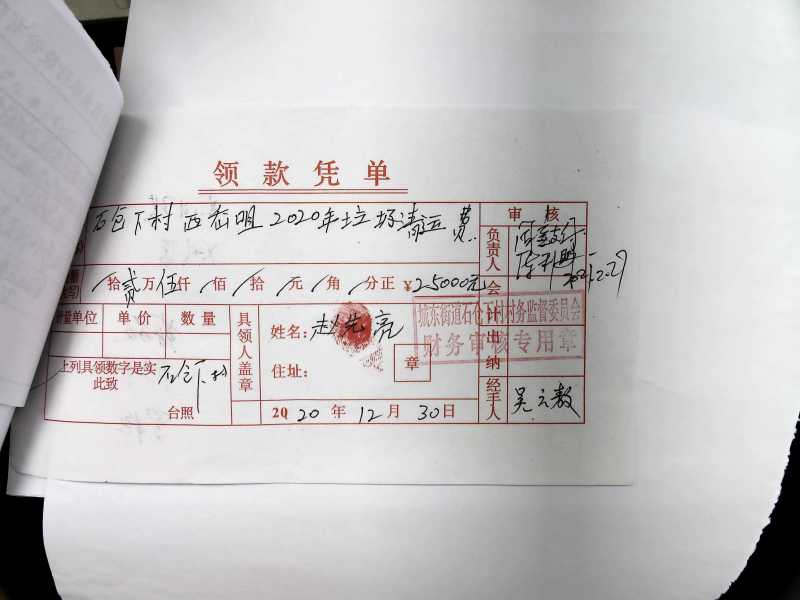 领款凭单
石仓下村 2020年垃圾清运费
审核
负责人
拾贰万伍仟佰拾元角分正 ¥25000元
会计
单位 单价 数量
具领人盖章
姓名:
住址:
章
坑东街道石仓下村村务监督委员会
财务审核专用章
出纳
上列具领数字是实
此致
石仓下村
台照
2020年12月30日
经手人
吴云敖